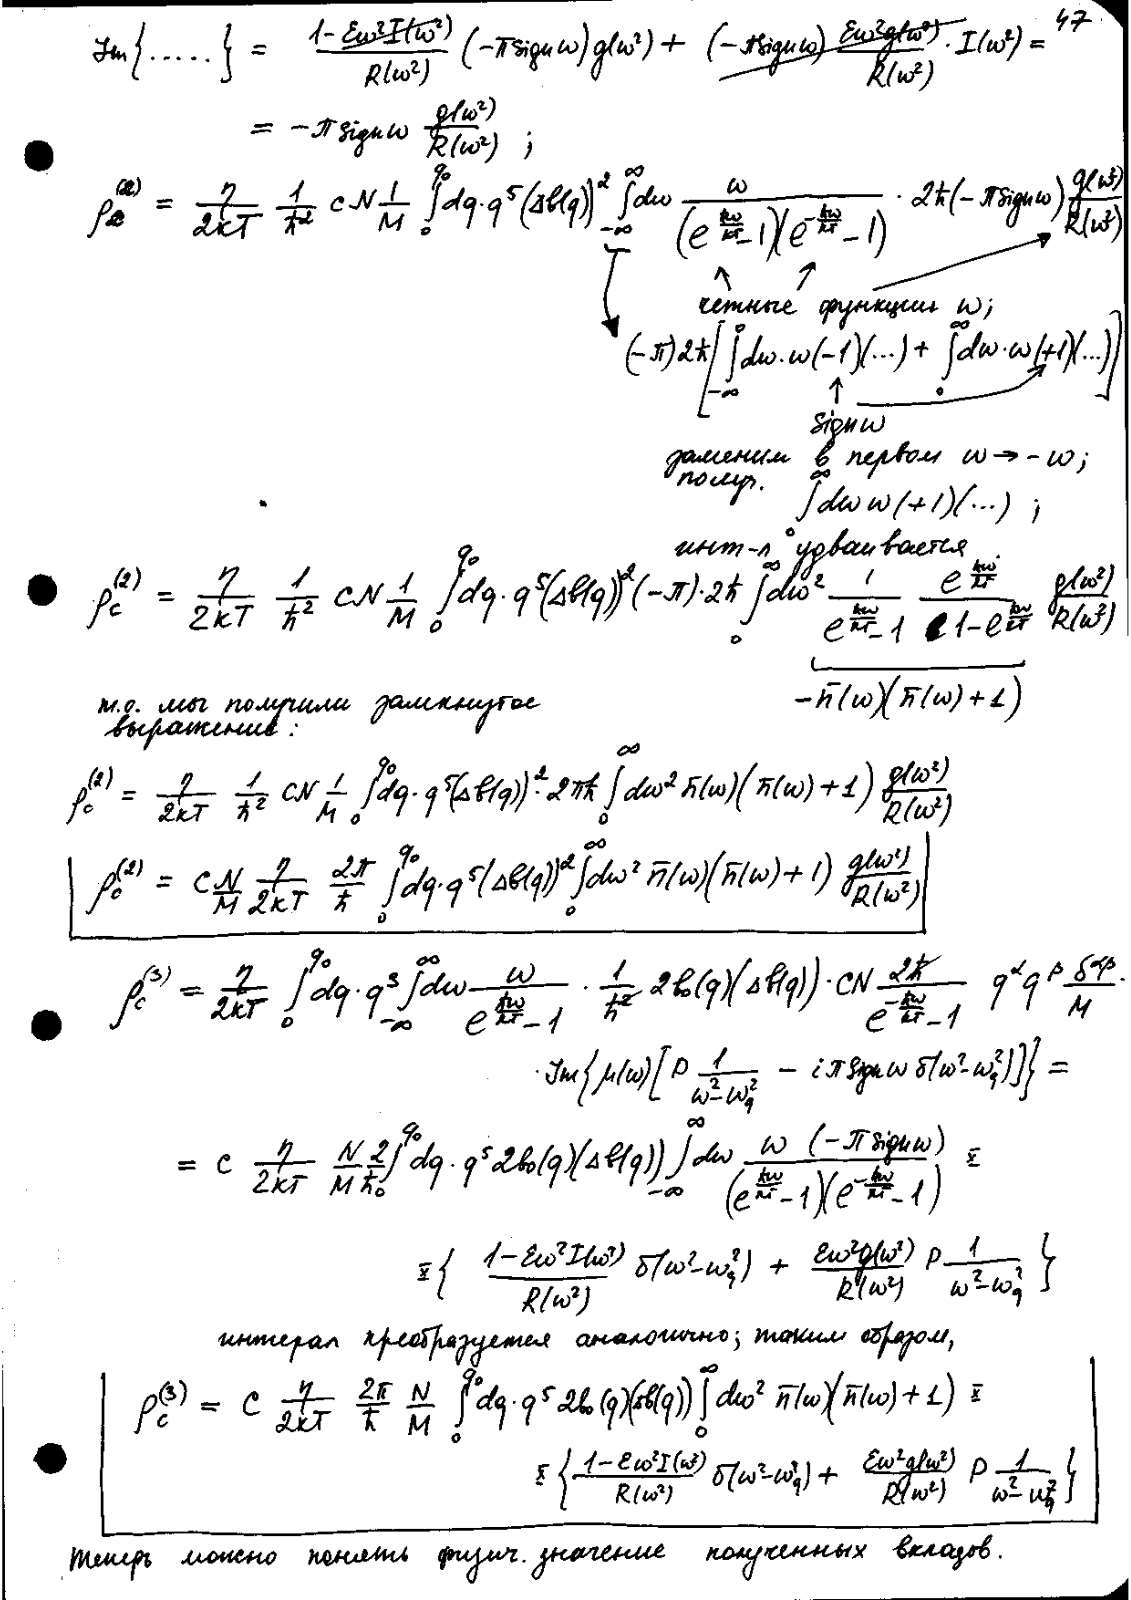 47
Im{.....} = (1-εω²I(ω²))/R(ω²) (-π sign ω) g(ω²) + (-π sign ω) εω²g(ω²)/R(ω²) · I(ω²) =
= -π sign ω g(ω²)/R(ω²) ;
ρ_c^(2) = η/2kT 1/ħ² cN 1/M ∫₀^q₀ dq·q⁵(Δb(q))² ∫_{-∞}^∞ dω ω/((e^{ħω/kT}-1)(e^{-ħω/kT}-1)) · 2ħ(-π sign ω) g(ω²)/R(ω²)
четные функции ω;
(-π)2ħ[∫_{-∞}^0 dω·ω(-1)(...) + ∫₀^∞ dω·ω(+1)(...)]
sign ω
заменим в первом ω→-ω;
получ. ∫₀^∞ dω ω(+1)(...) ;
инт-л удваивается.
ρ_c^(2) = η/2kT 1/ħ² cN 1/M ∫₀^q₀ dq·q⁵(Δb(q))²(-π)·2ħ ∫₀^∞ dω² 1/(e^{ħω/kT}-1) e^{ħω/kT}/(1-e^{ħω/kT}) g(ω²)/R(ω²)
-n̄(ω)(n̄(ω)+1)
т.о. мы получили замкнутое
выражение:
ρ_c^(2) = η/2kT 1/ħ² cN 1/M ∫₀^q₀ dq·q⁵(Δb(q))²·2πħ ∫₀^∞ dω² n̄(ω)(n̄(ω)+1) g(ω²)/R(ω²)
ρ_c^(2) = c N/M η/2kT 2π/ħ ∫₀^q₀ dq·q⁵(Δb(q))² ∫₀^∞ dω² n̄(ω)(n̄(ω)+1) g(ω²)/R(ω²)
ρ_c^(3) = η/2kT ∫₀^q₀ dq·q³ ∫_{-∞}^∞ dω ω/(e^{ħω/kT}-1) · 1/ħ² 2b₀(q)(Δb(q))·cN 2ħ/(e^{-ħω/kT}-1) q^α q^β δ^{αβ}/M ·
·Im{μ(ω)[P 1/(ω²-ω_q²) - iπ sign ω δ(ω²-ω_q²)]} =
= c η/2kT N/M 2/ħ ∫₀^q₀ dq·q⁵ 2b₀(q)(Δb(q)) ∫_{-∞}^∞ dω ω(-π sign ω)/((e^{ħω/kT}-1)(e^{-ħω/kT}-1)) ×
×{ (1-εω²I(ω²))/R(ω²) δ(ω²-ω_q²) + εω²g(ω²)/R(ω²) P 1/(ω²-ω_q²) }
интеграл преобразуется аналогично; таким образом,
ρ_c^(3) = c η/2kT 2π/ħ N/M ∫₀^q₀ dq·q⁵ 2b₀(q)(Δb(q)) ∫₀^∞ dω² n̄(ω)(n̄(ω)+1) ×
×{ (1-εω²I(ω²))/R(ω²) δ(ω²-ω_q²) + εω²g(ω²)/R(ω²) P 1/(ω²-ω_q²) }
Теперь можно понять физич. значение полученных вкладов.